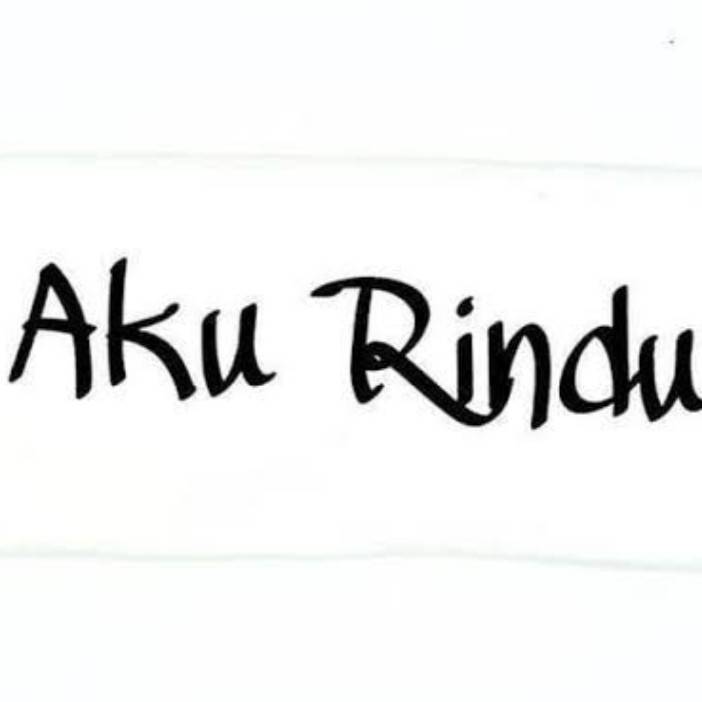 Aku Rindu